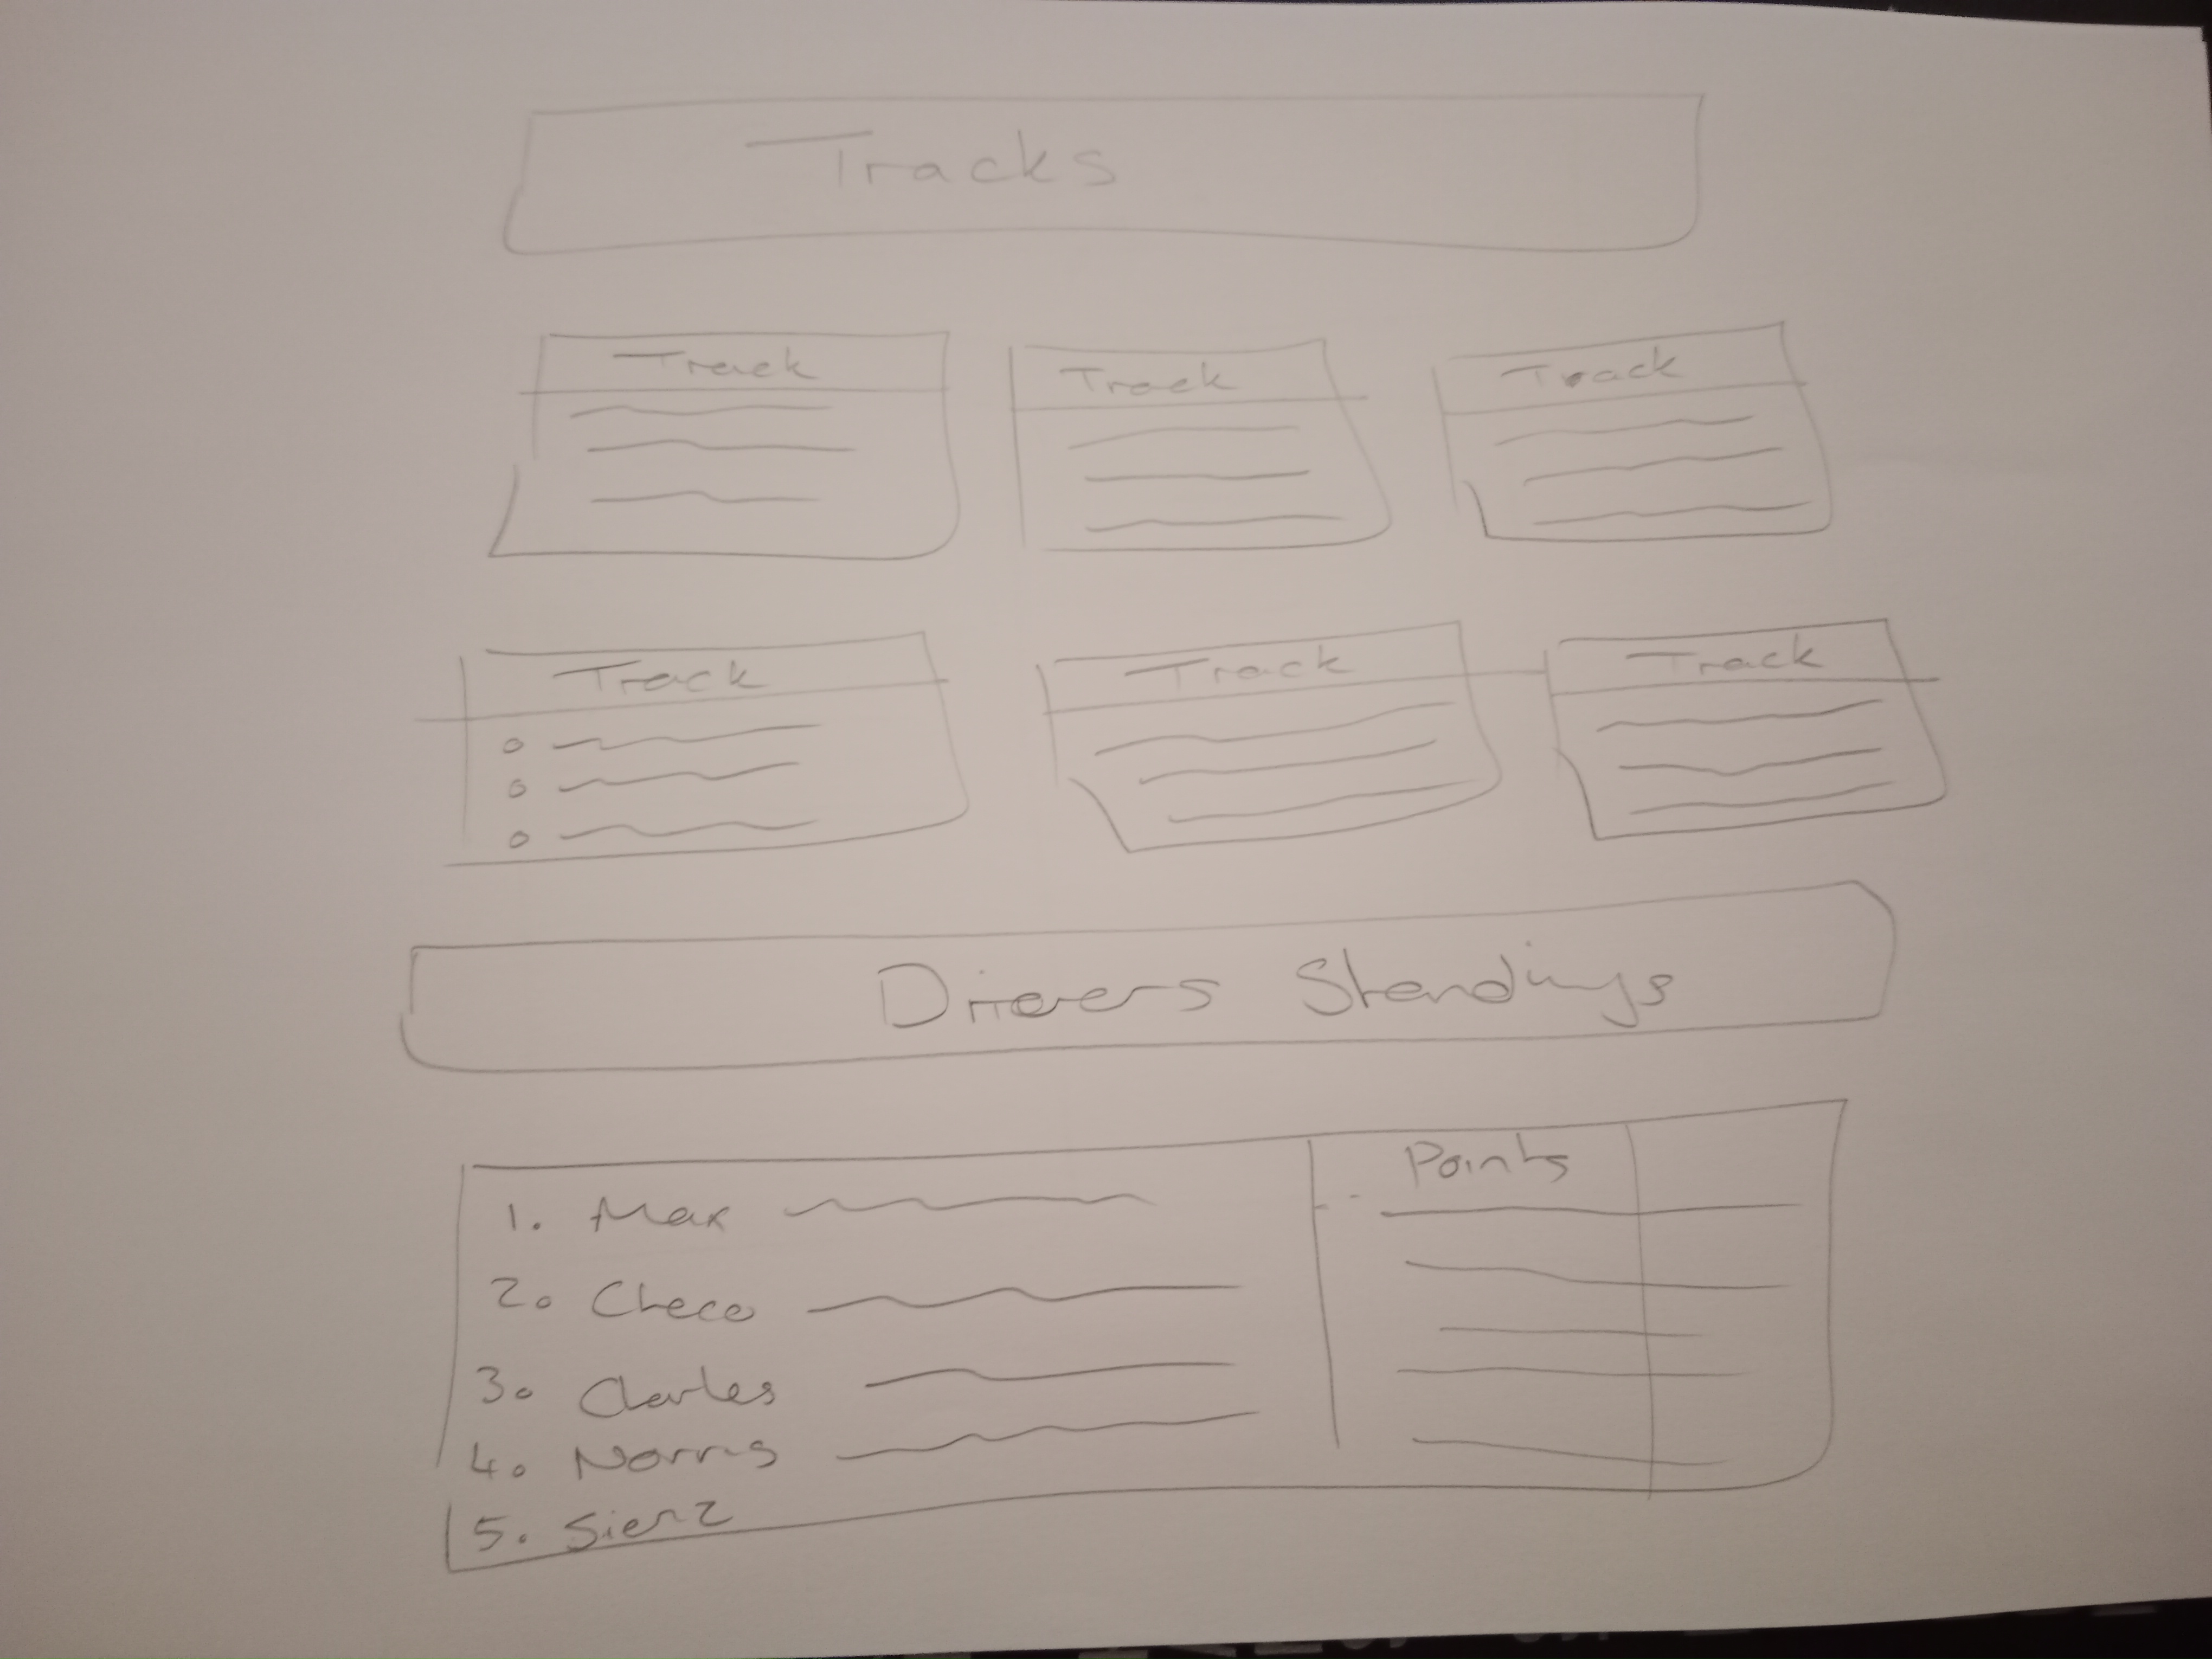 Tracks
Track Track Track
Track Track Track
Drivers Standings
Points
1. Max
2. Checo
3. Charles
4. Norris
5. Sienz